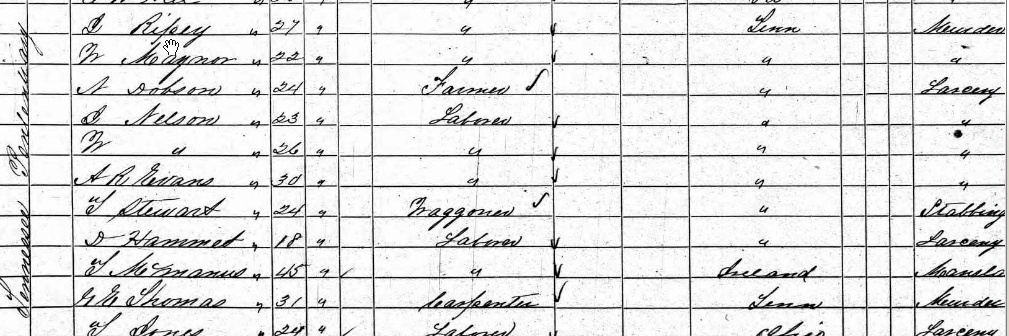 Tennessee Penitentiary
J Ripey " 27 " " Tenn Murder
W Maynor " 22 " " " "
N Dobson " 24 " Farmer " Larceny
J Nelson " 23 " Laborer " "
W " " 26 " " " "
A R Evans " 30 " " " "
T Stewart " 24 " Waggoner " Stabbing
D Hammet " 18 " Laborer " Larceny
T McManus " 45 " " Ireland Mansla
Thomas " 31 " Carpenter Tenn Murder
T Jones " 24 " Laborer Ohio Larceny